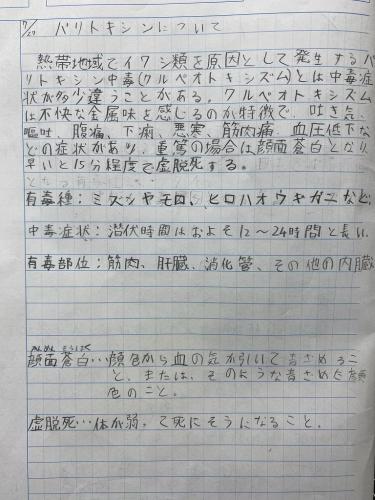 7/27 パリトキシンについて
熱帯地域でイワシ類を原因として発生するパ
リトキシン中毒(クルペオトキシズム)とは中毒症
状が多少違うことがある。クルペオトキシズム
は不快な金属味を感じるのが特徴で、吐き気、
嘔吐、腹痛、下痢、悪寒、筋肉痛、血圧低下な
どの症状があり、重篤の場合は顔面蒼白となり、
早いと15分程度で虚脱死する。
有毒種:ミズシヤモロ、ヒロハオウギガニなど。
中毒症状:潜伏時間はおよそ12〜24時間と長い。
有毒部位:筋肉、肝臓、消化管、その他の内臓
がんめん そうはく
顔面蒼白…顔色から血の気が引いて青ざめるこ
と、または、そのような青ざめた顔
色のこと。
虚脱死…体が弱って死にそうになること。